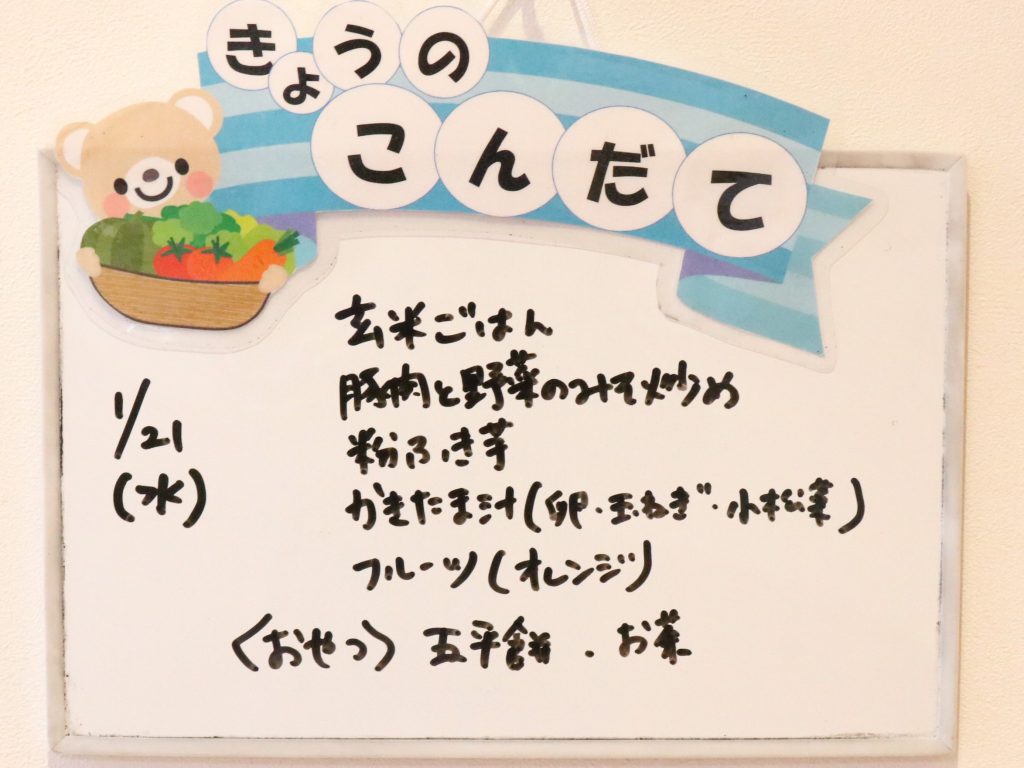 きょうの
こんだて
1/21
(水)
玄米ごはん
豚肉と野菜のみそ炒め
粉ふき芋
かきたま汁(卵・玉ねぎ・小松菜)
フルーツ(オレンジ)
〈おやつ〉 五平餅 . お茶